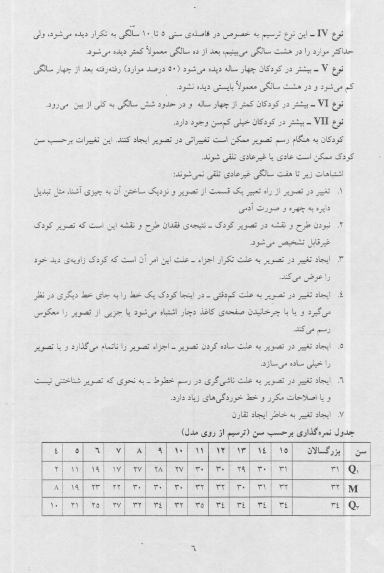 نوع IV ــ این نوع ترسیم به خصوص در فاصله‌ی سنی ۵ تا ۱۰ سالگی به تکرار دیده می‌شود، ولی
حداکثر موارد را در هشت سالگی می‌بینیم، بعد از ده سالگی معمولاً کمتر دیده می‌شود.
نوع V ــ بیشتر در کودکان چهار ساله دیده می‌شود (۵۰ درصد موارد) رفته‌رفته بعد از چهار سالگی
کم می‌شود و در هشت سالگی معمولاً بایستی دیده نشود.
نوع VI ــ بیشتر در کودکان کمتر از چهار ساله و در حدود شش سالگی به کلی از بین می‌رود.
نوع VII ــ بیشتر در کودکان خیلی کم‌سن وجود دارد.
کودکان به هنگام رسم تصویر ممکن است تغییراتی در تصویر ایجاد کنند. این تغییرات برحسب سن
کودک ممکن است عادی یا غیرعادی تلقی شوند.
اشتباهات زیر تا هفت سالگی غیرعادی تلقی نمی‌شوند:
۱. تغییر در تصویر از راه تعبیر یک قسمت از تصویر و نزدیک ساختن آن به چیزی آشنا، مثل تبدیل
دایره به چهره و صورت آدمی
۲. نبودن طرح و نقشه در تصویر کودک ــ نتیجه‌ی فقدان طرح و نقشه این است که تصویر کودک
غیرقابل تشخیص می‌شود.
۳. ایجاد تغییر در تصویر به علت تکرار اجزاء ــ علت این امر آن است که کودک زاویه‌ی دید خود
را عوض می‌کند.
۴. ایجاد تغییر در تصویر به علت کم‌دقتی ــ در اینجا کودک یک خط را به جای خط دیگری در نظر
می‌گیرد و یا با چرخانیدن صفحه‌ی کاغذ دچار اشتباه می‌شود یا جزیی از تصویر را معکوس
رسم می‌کند.
۵. ایجاد تغییر در تصویر به علت ساده کردن تصویر ــ اجزاء تصویر را ناتمام می‌گذارد و یا تصویر
را خیلی ساده می‌سازد.
۶. ایجاد تغییر در تصویر به علت ناشی‌گری در رسم خطوط ــ به نحوی که تصویر شناختنی نیست
و یا اصلاحات مکرر و خط خوردگی‌های زیاد دارد.
۷. ایجاد تغییر به خاطر ایجاد تقارن
جدول نمره‌گذاری برحسب سن (ترسیم از روی مدل)
سن بزرگسالان ۱۵ ۱۴ ۱۳ ۱۲ ۱۱ ۱۰ ۹ ۸ ۷ ۶ ۵ ۴
Q₁ ۳۱ ۳۱ ۳۰ ۲۹ ۳۰ ۳۰ ۲۷ ۲۸ ۲۷ ۱۷ ۱۹ ۱۱ ۲
M ۳۲ ۳۲ ۳۱ ۳۰ ۳۲ ۳۲ ۳۰ ۳۰ ۳۰ ۲۲ ۲۳ ۱۹ ۸
Q۳ ۳۴ ۳۴ ۳۴ ۳۴ ۳۴ ۳۵ ۳۲ ۳۴ ۳۲ ۲۷ ۲۵ ۲۱ ۱۰
۶